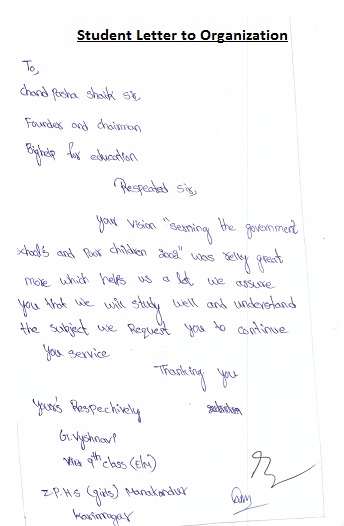 Student Letter to Organization
To,
Chand Pasha Shaik Sir,
Founder and chairman
Bighelp for education
Respeated Sir,
Your vision "serning the government
schools and poor children 2002" was relly great
more which helps us a lot we assure
you that we will study well and understand
the subject we Request you to continue
you service
Thanking you
Your's Respechively
G.Vyshnavi
9th class (E/M)
Z.P.H.S (girls) Manakondur
Karimnagar